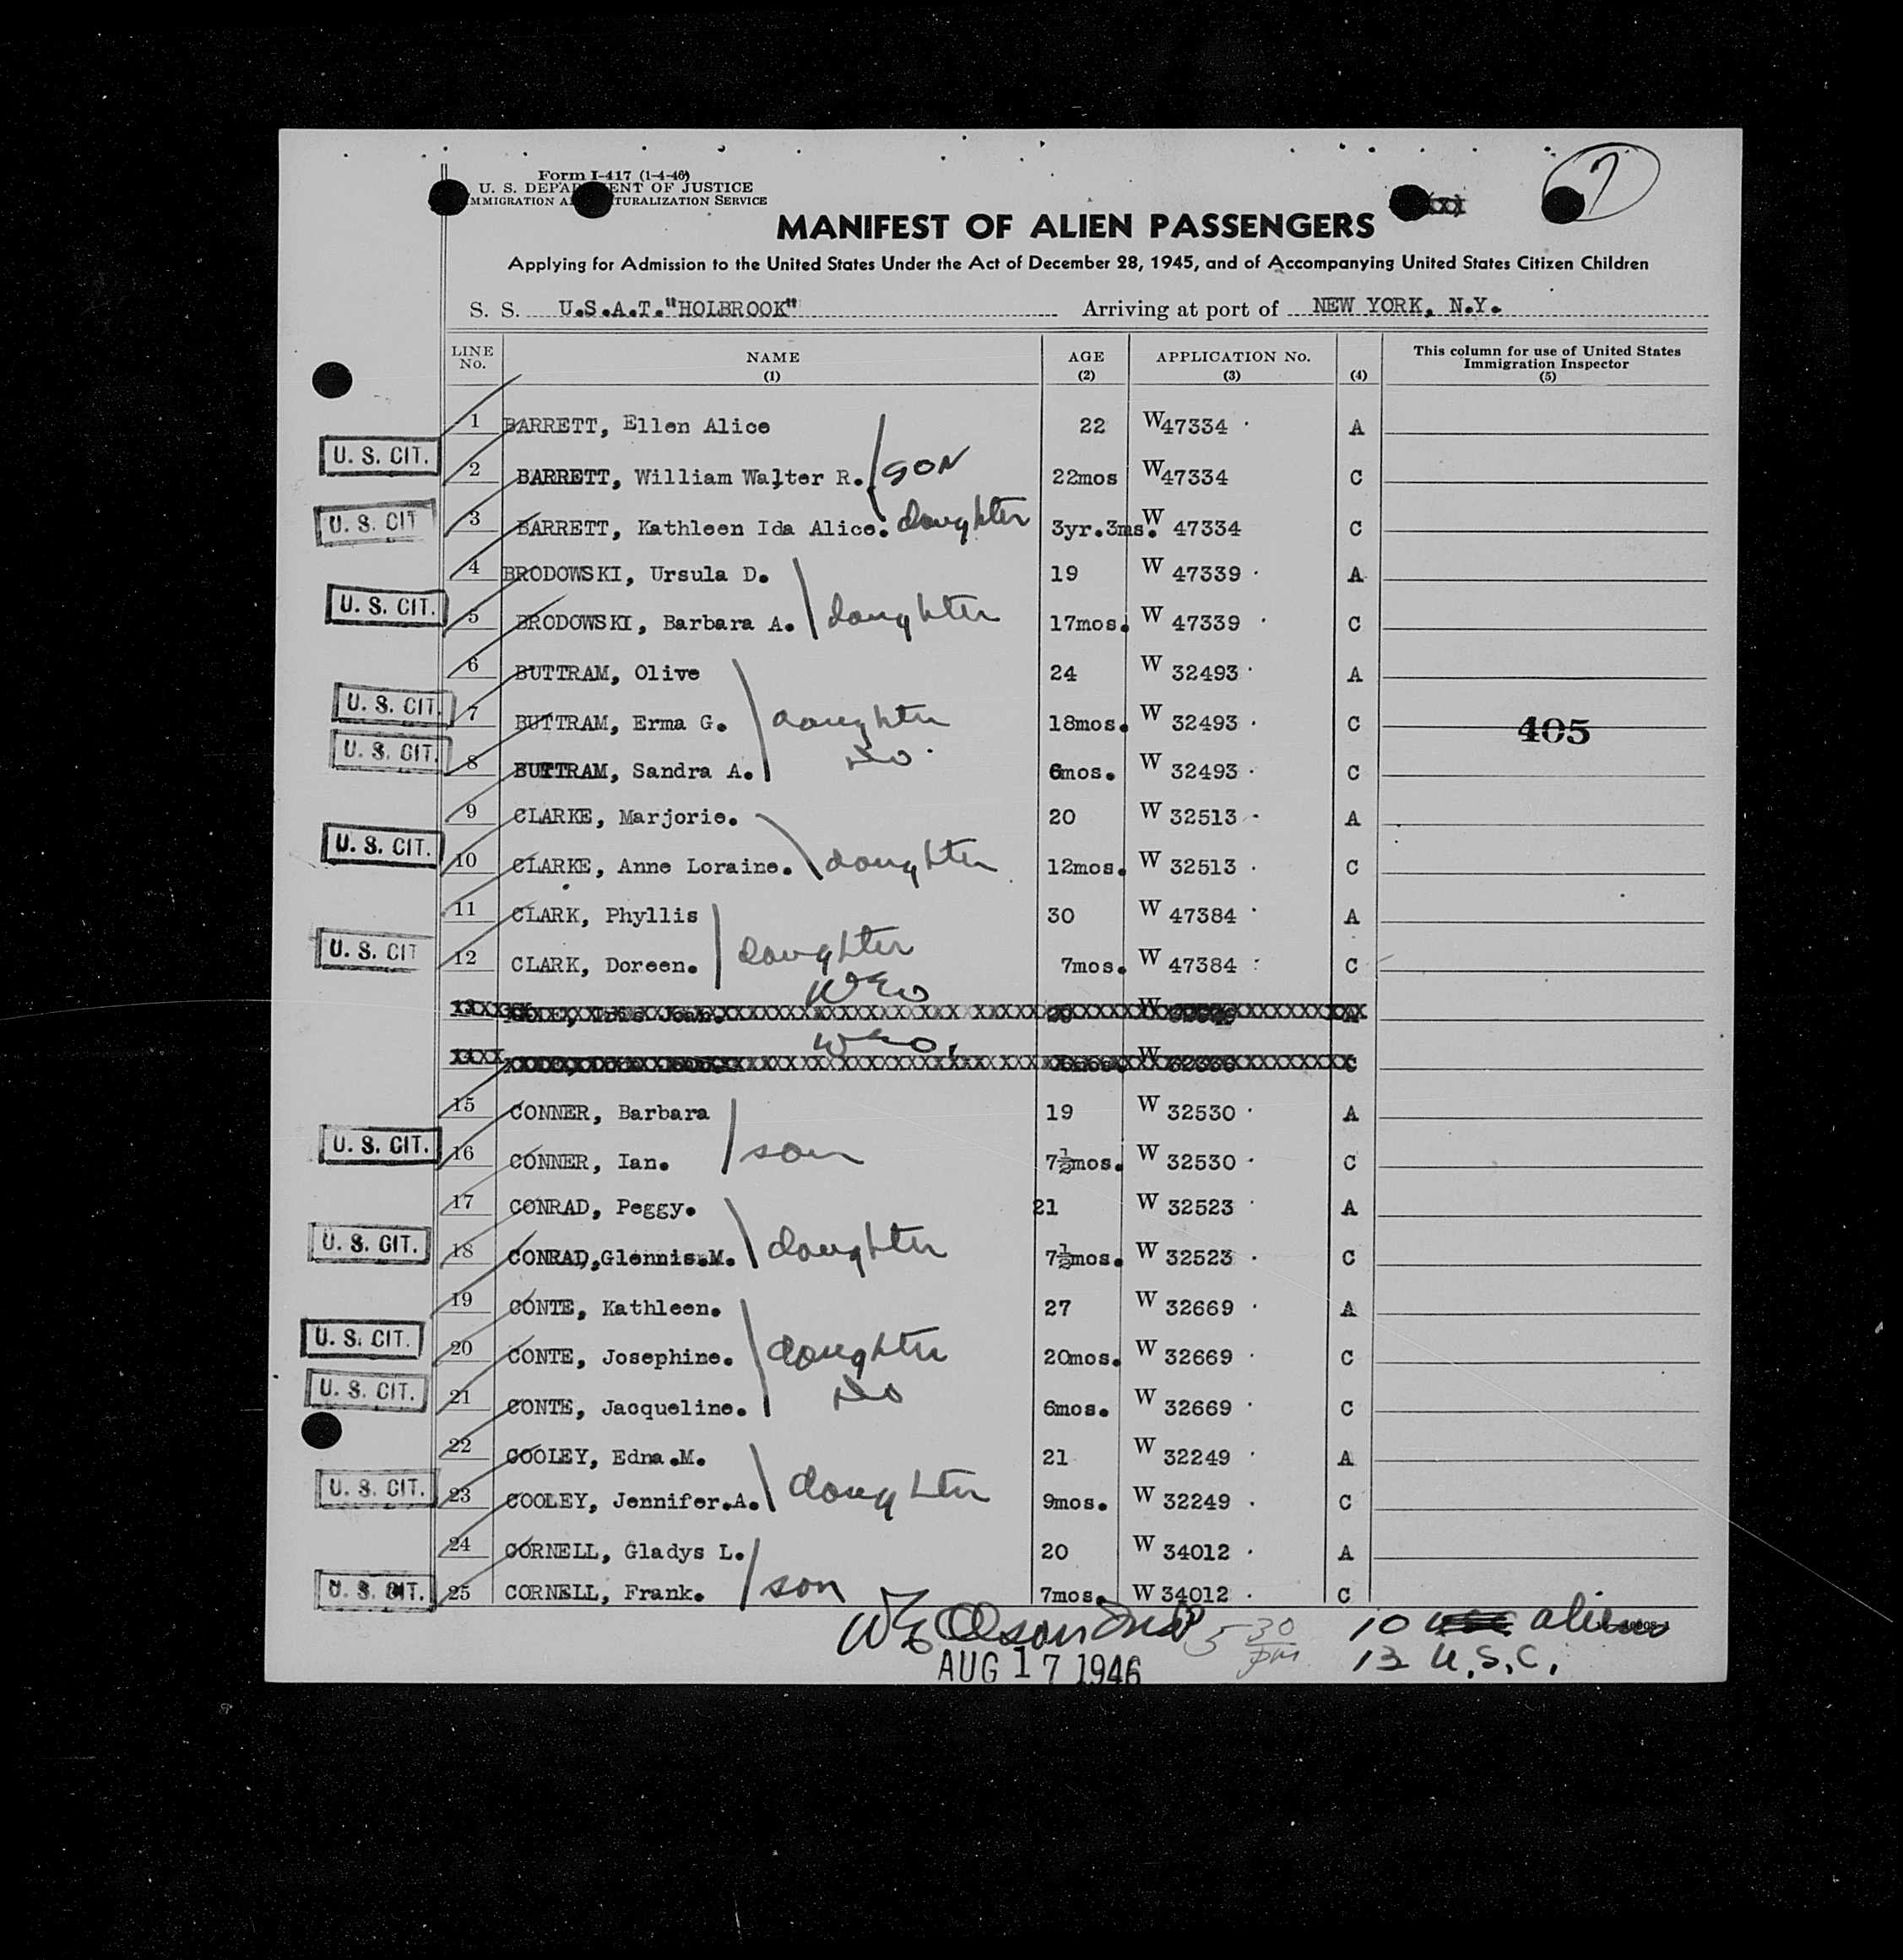 Form I-417 (1-4-46)
U. S. DEPA ENT OF JUSTICE
MMIGRATION A TURALIZATION SERVICE
7
MANIFEST OF ALIEN PASSENGERS
Applying for Admission to the United States Under the Act of December 28, 1945, and of Accompanying United States Citizen Children
S. S. U.S.A.T."HOLBROOK" Arriving at port of NEW YORK, N.Y.
LINE No. NAME (1) AGE (2) APPLICATION No. (3) (4) This column for use of United States Immigration Inspector (5)
1 BARRETT, Ellen Alice 22 W47334 A
U. S. CIT. 2 BARRETT, William Walter R. son 22mos W47334 C
U. S. CIT 3 BARRETT, Kathleen Ida Alice. daughter 3yr.3ms. W 47334 C
4 BRODOWSKI, Ursula D. 19 W 47339 A
U. S. CIT. 5 BRODOWSKI, Barbara A. daughter 17mos. W 47339 C
6 BUTTRAM, Olive 24 W 32493 A
U. S. CIT. 7 BUTTRAM, Erma G. daughter 18mos. W 32493 C 405
U. S. CIT. 8 BUTTRAM, Sandra A. Do 6mos. W 32493 C
9 CLARKE, Marjorie. 20 W 32513 A
U. S. CIT. 10 CLARKE, Anne Loraine. daughter 12mos. W 32513 C
11 CLARK, Phyllis 30 W 47384 A
U. S. CIT 12 CLARK, Doreen. daughter 7mos. W 47384 C
WEO
WEO.
15 CONNER, Barbara 19 W 32530 A
U. S. CIT. 16 CONNER, Ian. son 7½mos. W 32530 C
17 CONRAD, Peggy. 21 W 32523 A
U. S. CIT. 18 CONRAD,Glennis.M. daughter 7½mos. W 32523 C
19 CONTE, Kathleen. 27 W 32669 A
U. S. CIT. 20 CONTE, Josephine. daughter 20mos. W 32669 C
U. S. CIT. 21 CONTE, Jacqueline. Do 6mos. W 32669 C
22 COOLEY, Edna.M. 21 W 32249 A
U. S. CIT. 23 COOLEY, Jennifer.A. daughter 9mos. W 32249 C
24 CORNELL, Gladys L. 20 W 34012 A
U. S. CIT. 25 CORNELL, Frank. son 7mos. W 34012 C
WE Olson 5 30 pm 10 aliens
AUG 17 1946 13 U.S.C.